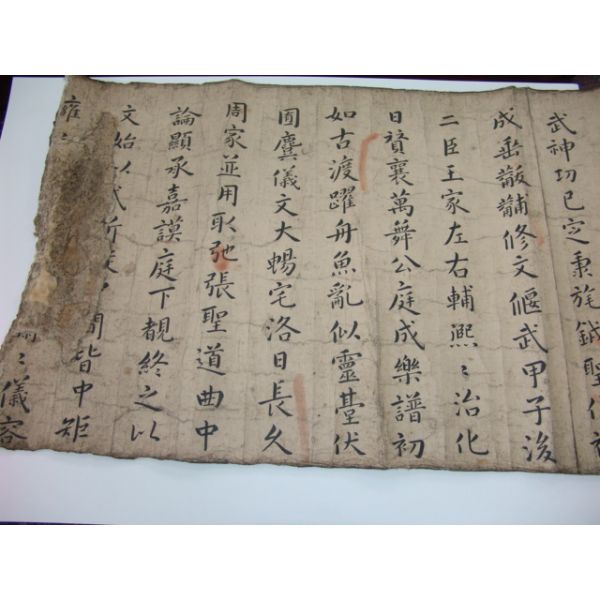 武神功已定秉旄鉞聖作
成垂黻黼修文偃武甲子後
二臣王家左右輔熈〻治化
日賛襄萬舞公庭成樂譜初
如古渡躍舟魚亂似靈䑓伏
囿麌儀文大蜴宅洛日長久
周家並用取弛張聖道曲中
論顯承嘉謨庭下覩終之以
文始以武
皆中矩
雍
〻儀容